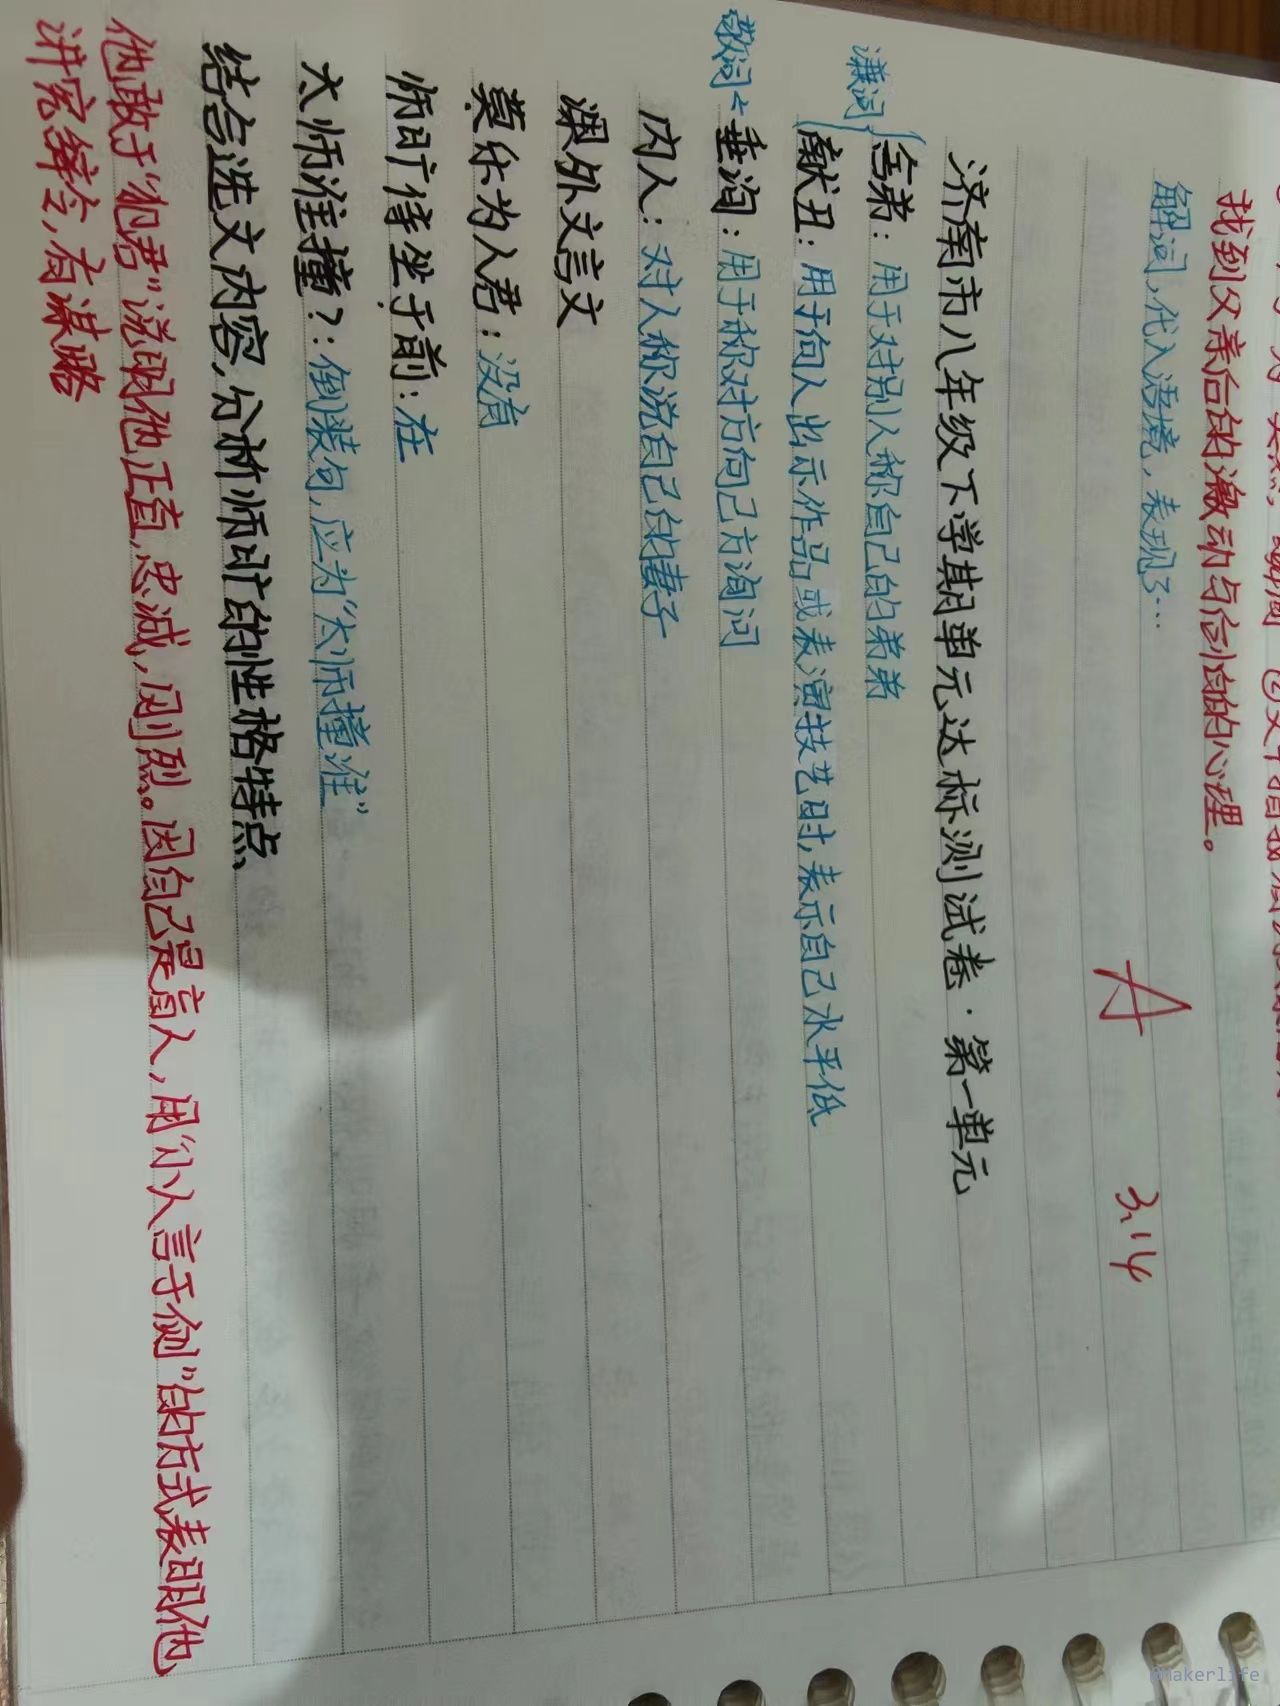 找到父亲后的激动与信心的心理。
解词，代入语境，表现了…
A 3.14
济南市八年级下学期单元达标测试卷·第一单元
谦词 舍弟：用于对别人称自己的弟弟
献丑：用于向人出示作品或表演技艺时，表示自己水平低
敬词 垂询：用于称对方向己方询问
内人：对人称说自己的妻子
课外文言文
莫乐为人君：没有
师旷侍坐于前：在
太师谁撞？：倒装句，应为“太师撞谁”
结合选文内容，分析师旷的性格特点
他敢于“犯君”说明他正直，忠诚，刚烈。因自己是盲人，用“小人言于侧”的方式表明他
讲究，有谋略
@Makerlife